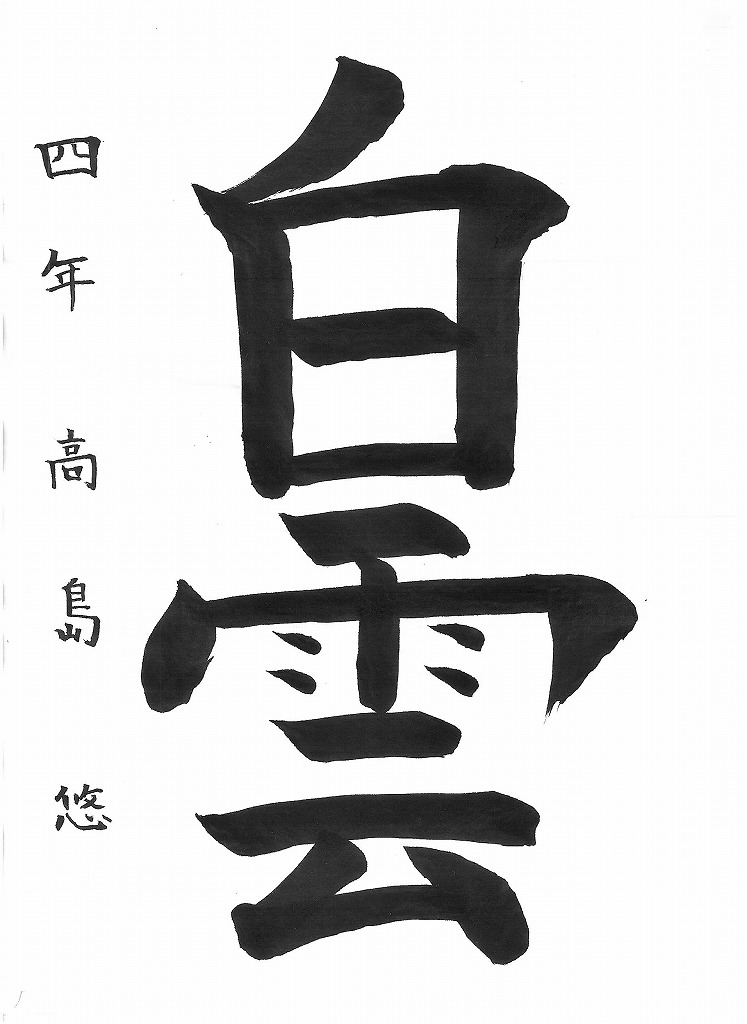 白雲
四年 高島 悠